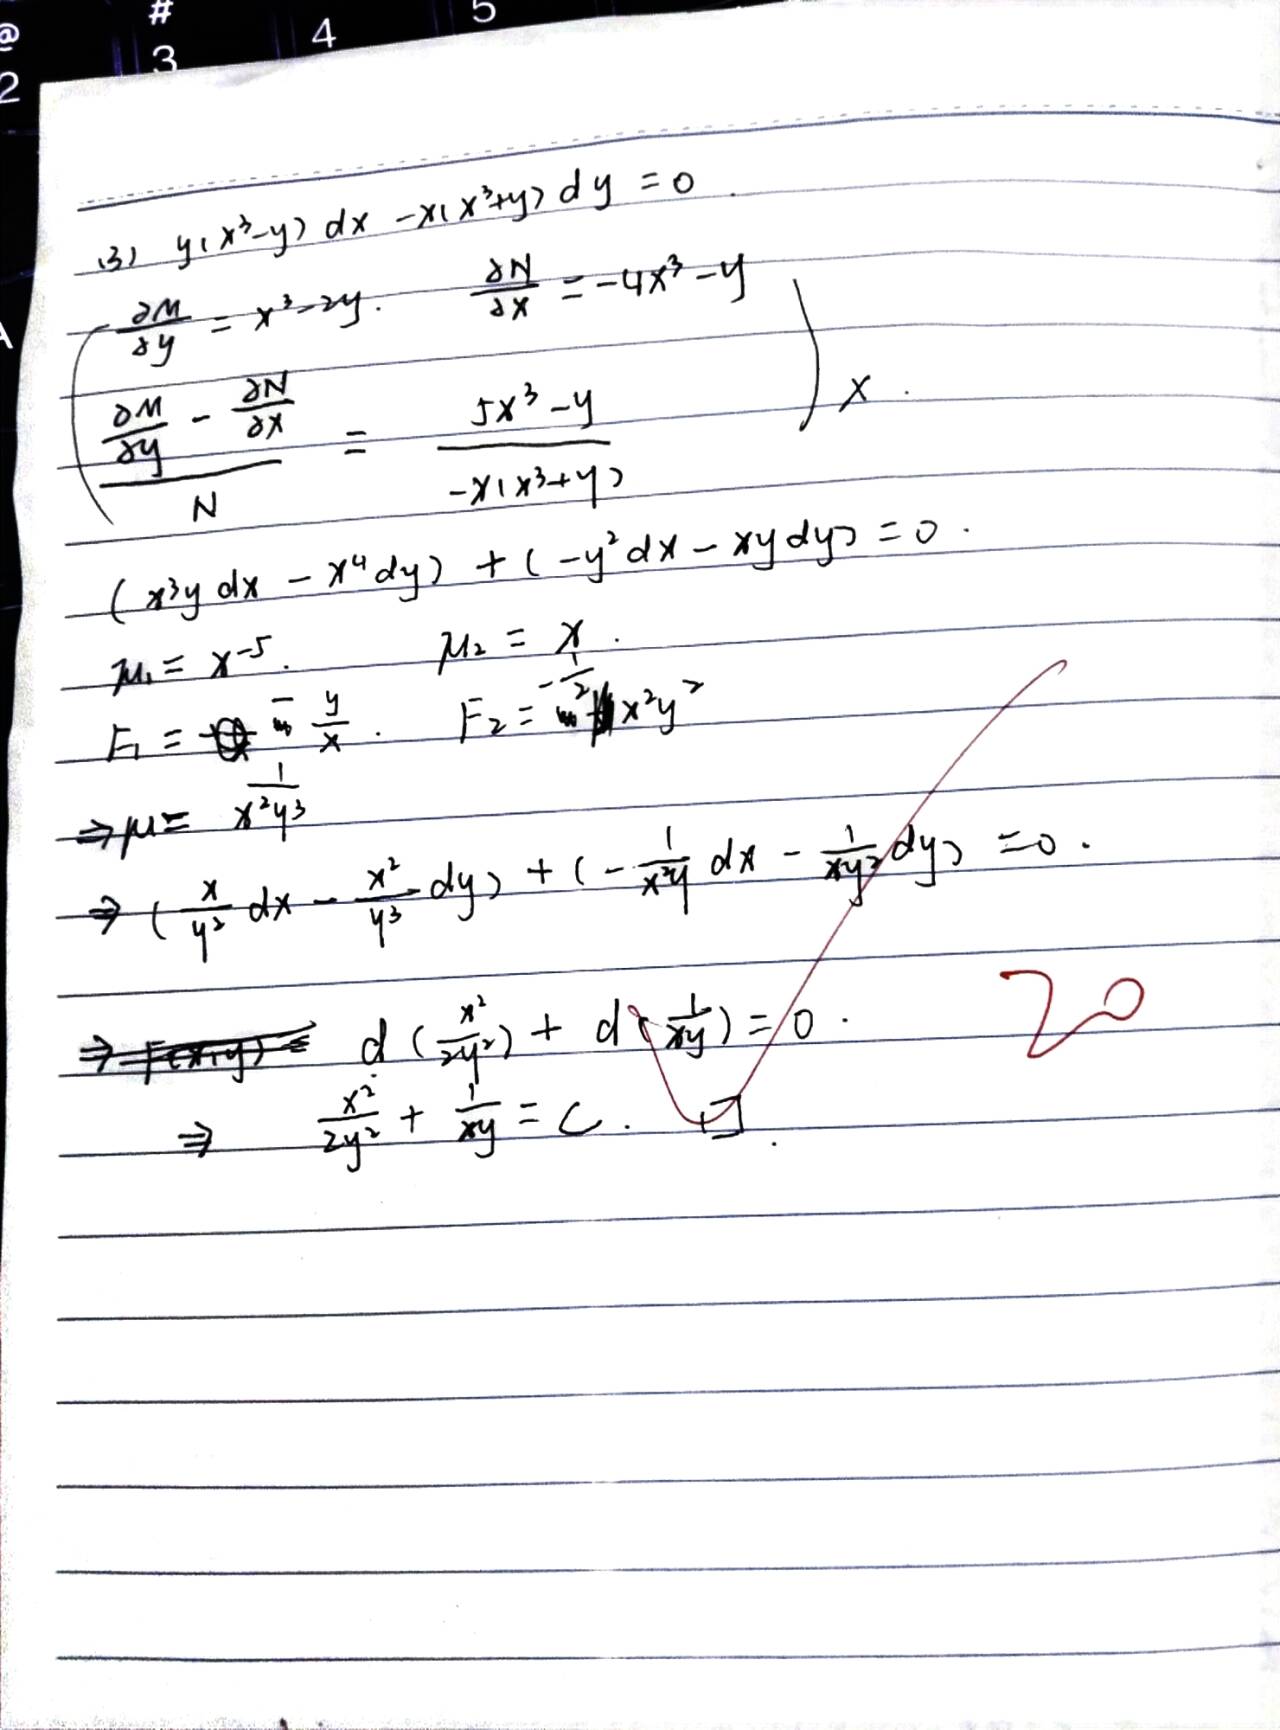 @ # 4 5
2 3
A
(3) y(x³-y) dx - x(x³+y) dy = 0.
( ∂M/∂y = x³-2y. ∂N/∂x = -4x³-y
(∂M/∂y - ∂N/∂x)/N = (5x³-y)/(-x(x³+y)) ) X.
(x³y dx - x⁴dy) + (-y²dx - xy dy) = 0.
μ₁ = x⁻⁵. μ₂ = x.
F₁ = - y/x. F₂ = -1/2 x²y²
⇒ μ = 1/(x²y³)
⇒ (x/y² dx - x²/y³ dy) + (- 1/(x²y) dx - 1/(xy²) dy) = 0.
⇒ F(x,y) = d(x²/2y²) + d(1/xy) = 0.
⇒ x²/2y² + 1/xy = C.
20